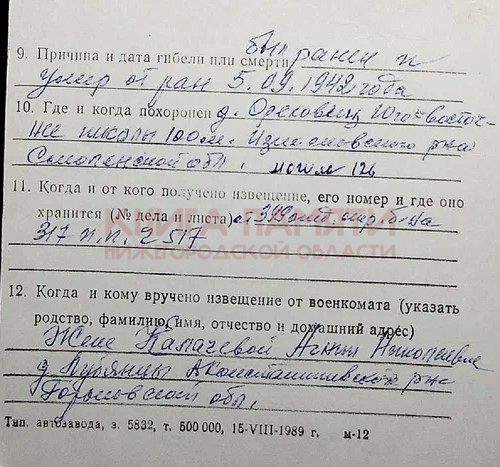 9. Причина и дата гибели или смерти был ранен и
умер от ран 5.09.1942 года
10. Где и когда похоронен д. Ореховец Юго-восточ-
нее школы 100 м. Износковского р-на
Смоленской обл.
11. Когда и от кого получено извещение, его номер и где оно
хранится (№ дела и листа) от
317 п.п. 2517
КНИГА ПАМЯТИ
НИЖЕГОРОДСКОЙ ОБЛАСТИ
12. Когда и кому вручено извещение от военкомата (указать
родство, фамилию, имя, отчество и домашний адрес)
Жене Калачевой
д. р-на
Горьковской обл.
Тип. автозавода, з. 5832, т. 500 000, 15-VIII-1989 г. м-12